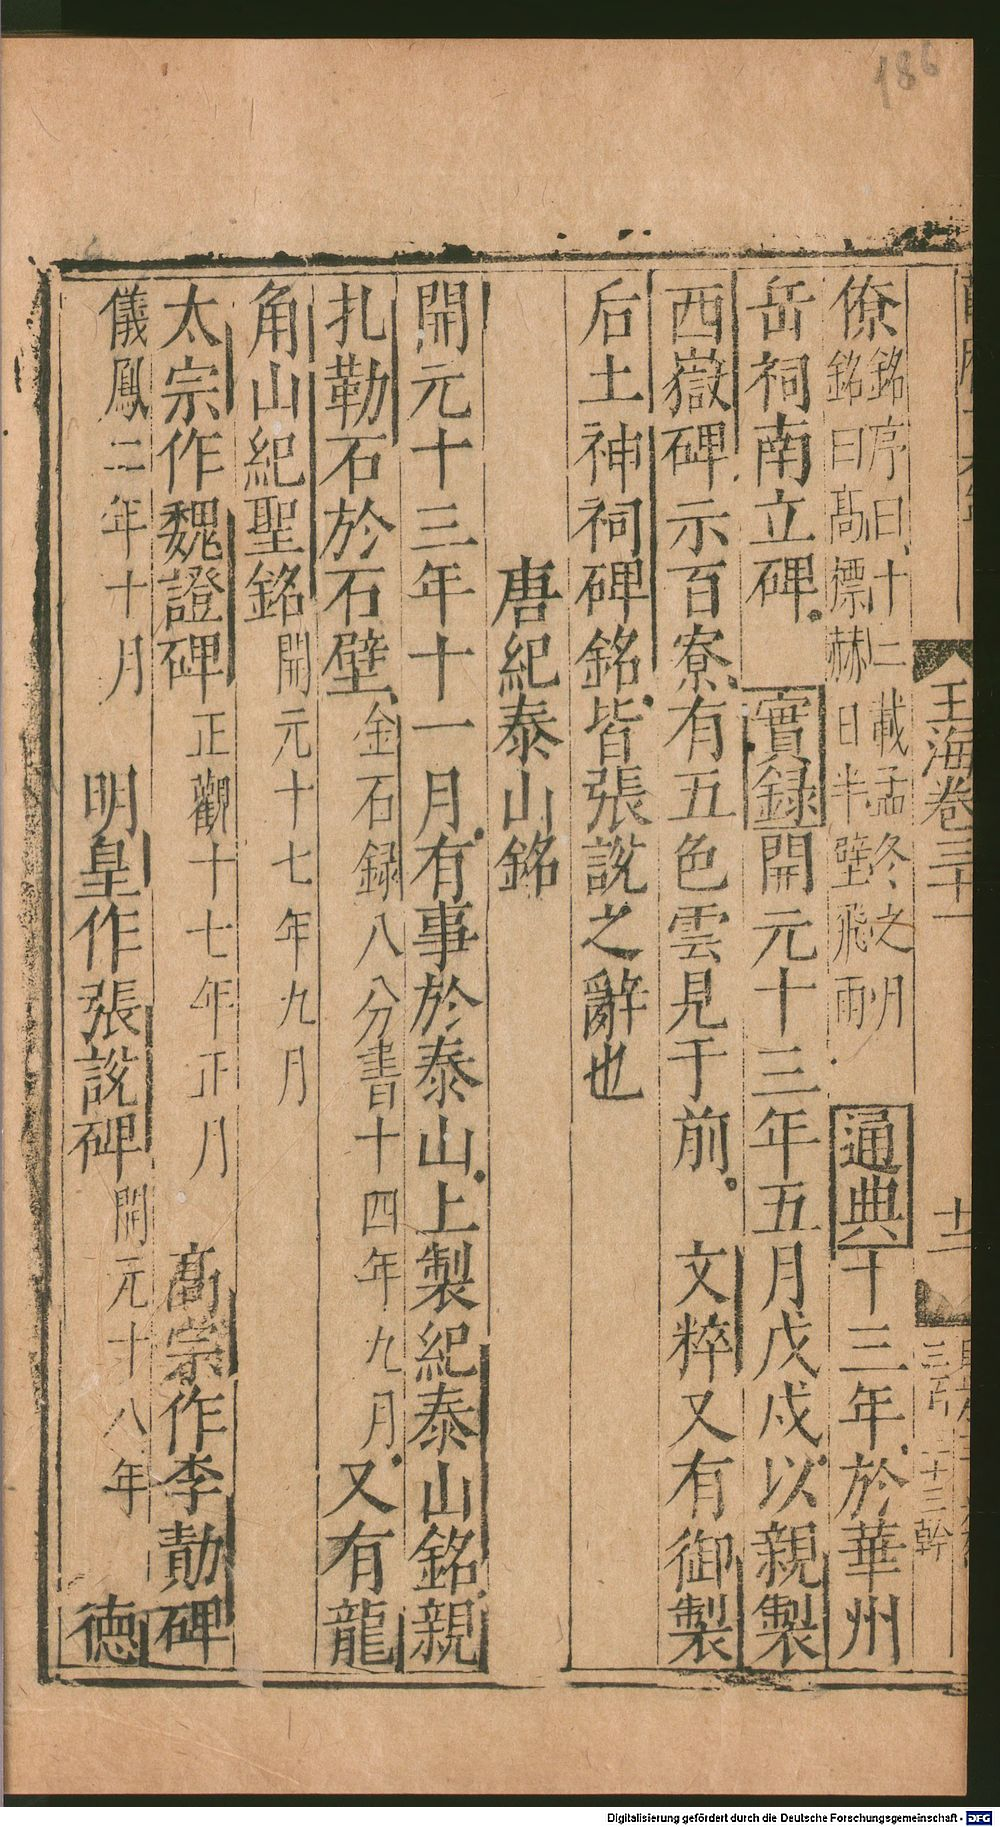 186
玉海卷三十一
十二
僚銘序曰十二載孟冬之月
銘曰髙標赫日半壁飛雨
通典六十三年於華州
岳祠南立碑。實録開元十三年五月戊戌以親製
西嶽碑示百寮有五色雲見于前。文粹又有御製
后土神祠碑銘皆張說之辭也
唐紀泰山銘
開元十三年十一月有事於泰山上製紀泰山銘親
扎勒石於石壁金石録八分書十四年九月又有龍
角山紀聖銘開元十七年九月
太宗作魏證碑正觀十七年正月　髙宗作李勣碑
儀鳳二年十月　明皇作張說碑開元十八年　德
Digitalisierung gefördert durch die Deutsche Forschungsgemeinschaft - DFG